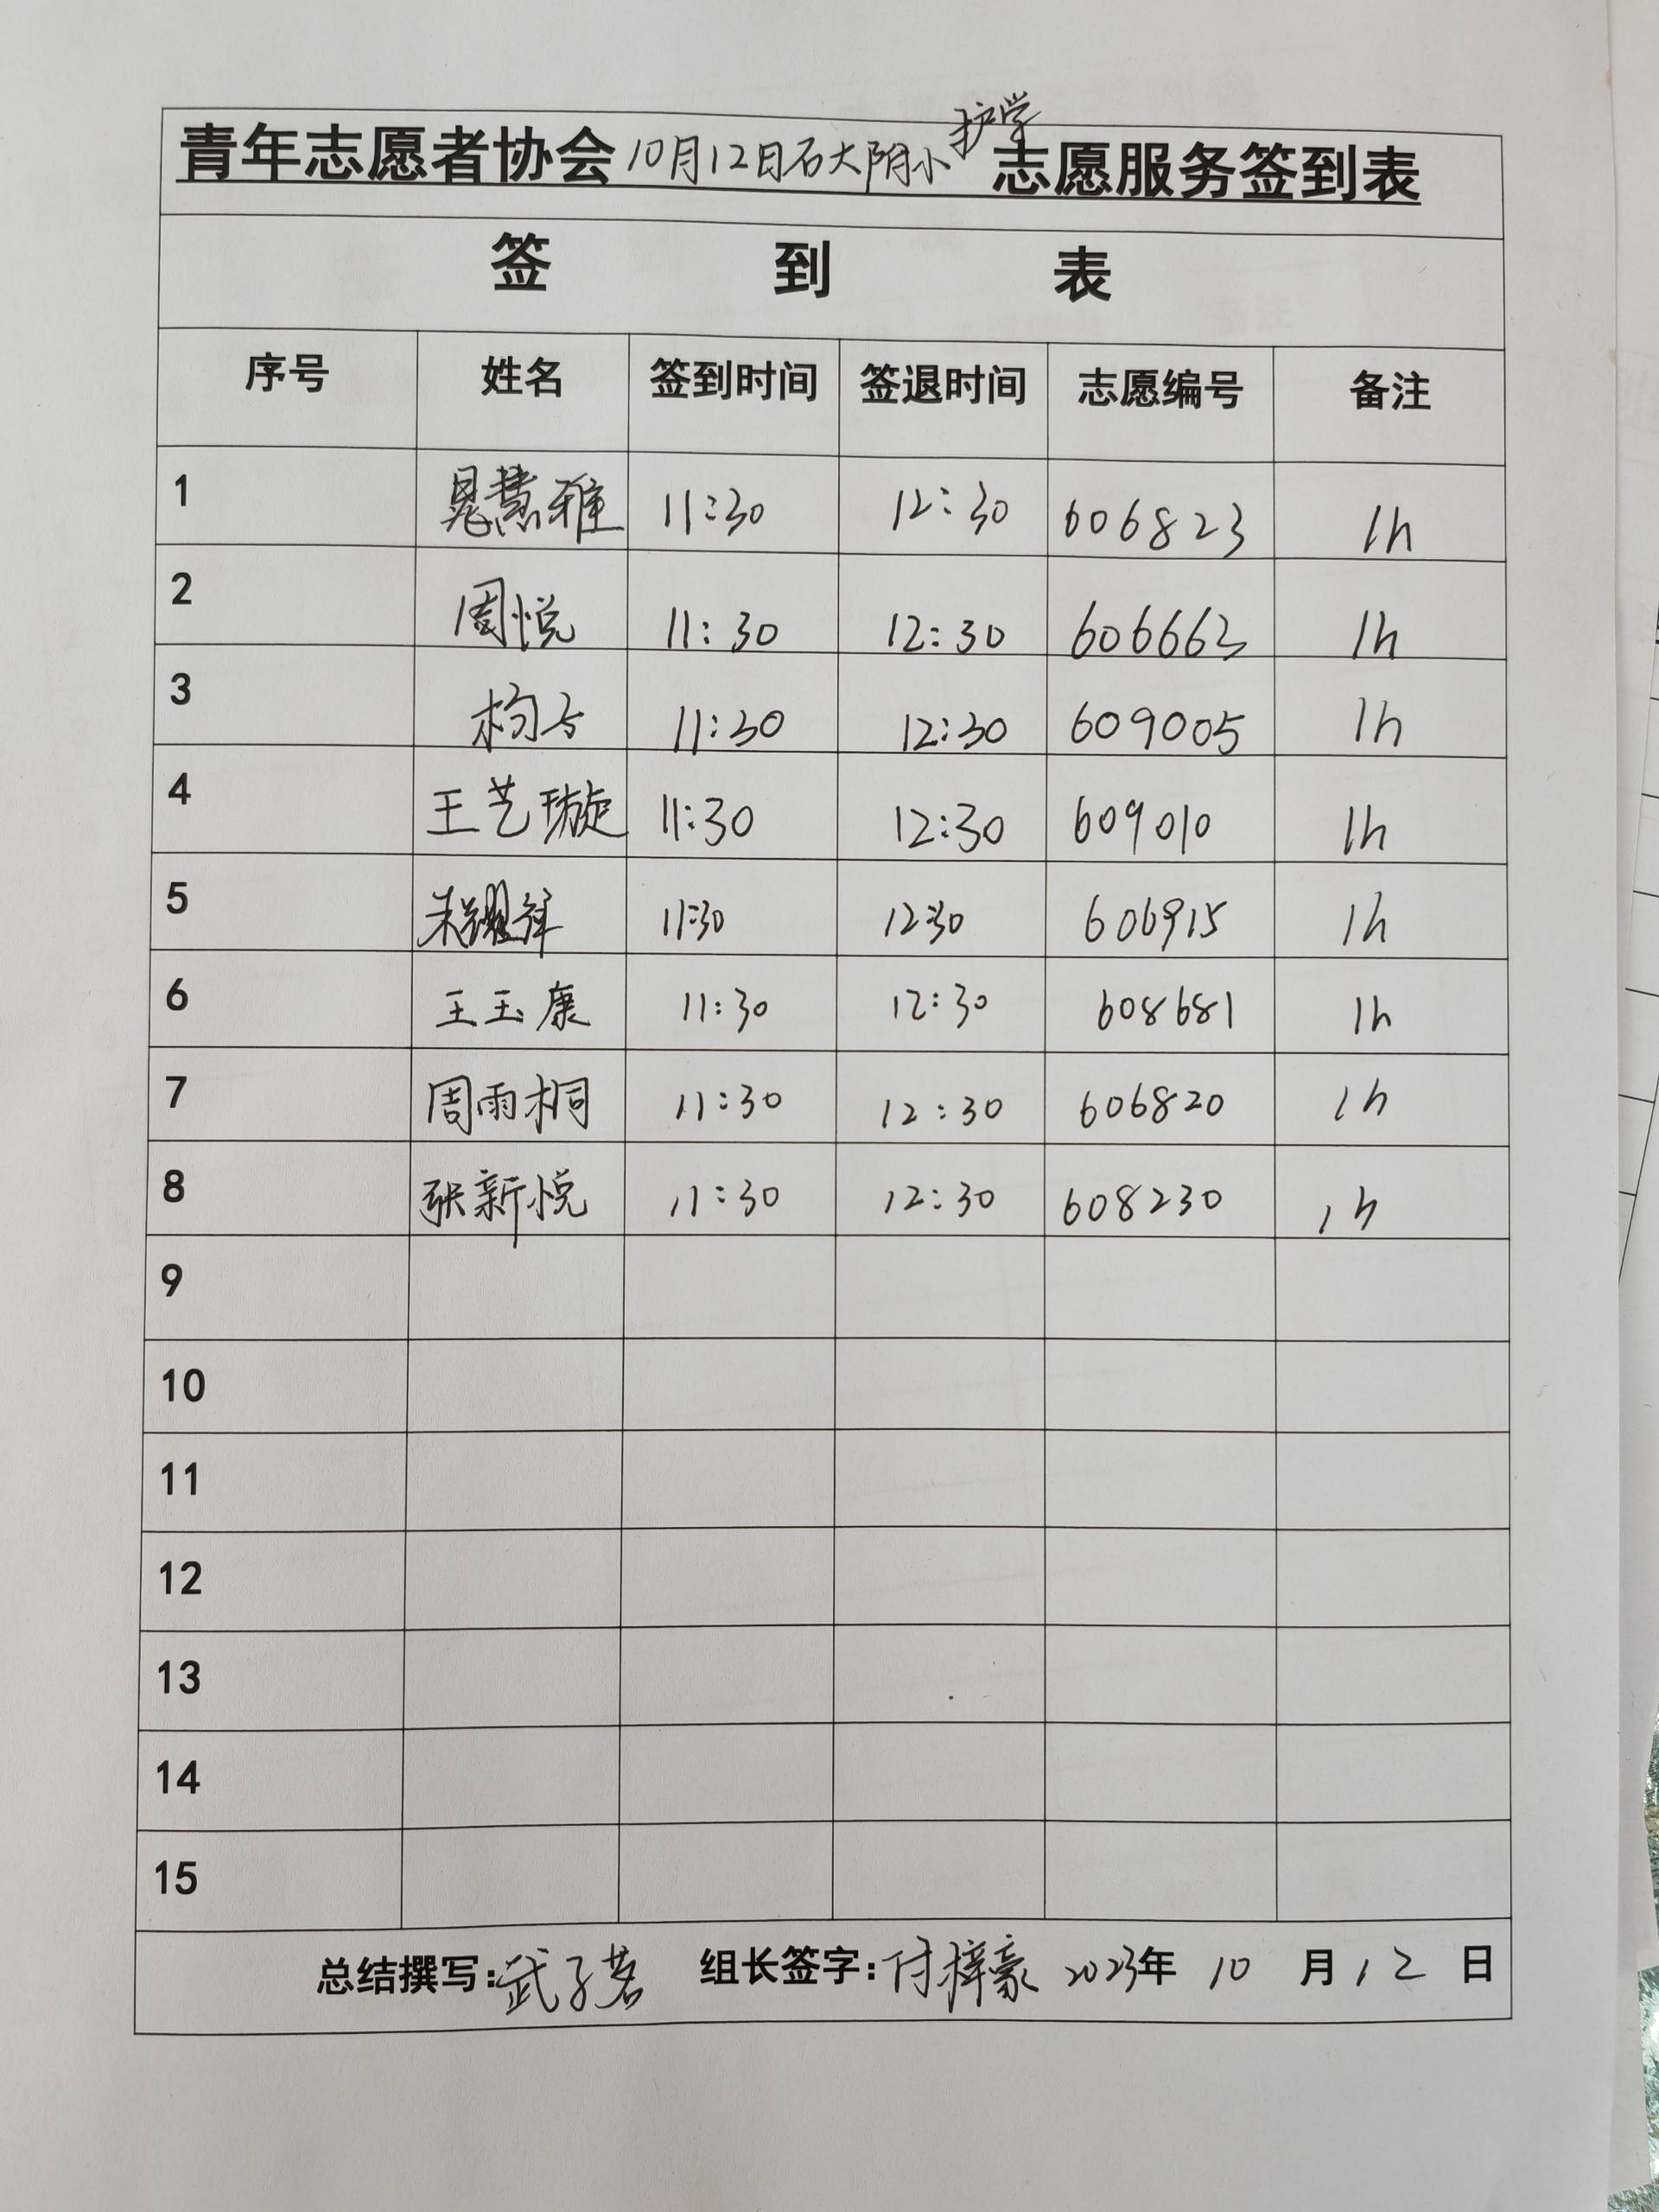 青年志愿者协会10月12日石大附小护学志愿服务签到表
签 到 表
序号 姓名 签到时间 签退时间 志愿编号 备注
1 晁慧雅 11:30 12:30 606823 1h
2 周悦 11:30 12:30 606663 1h
3 11:30 12:30 609005 1h
4 王艺璇 11:30 12:30 609010 1h
5 11:30 12:30 606915 1h
6 王玉康 11:30 12:30 608681 1h
7 周雨桐 11:30 12:30 606820 1h
8 张新悦 11:30 12:30 608230 1h
9
10
11
12
13
14
15
总结撰写:武子茗 组长签字:付梓豪 2023年 10 月 12 日